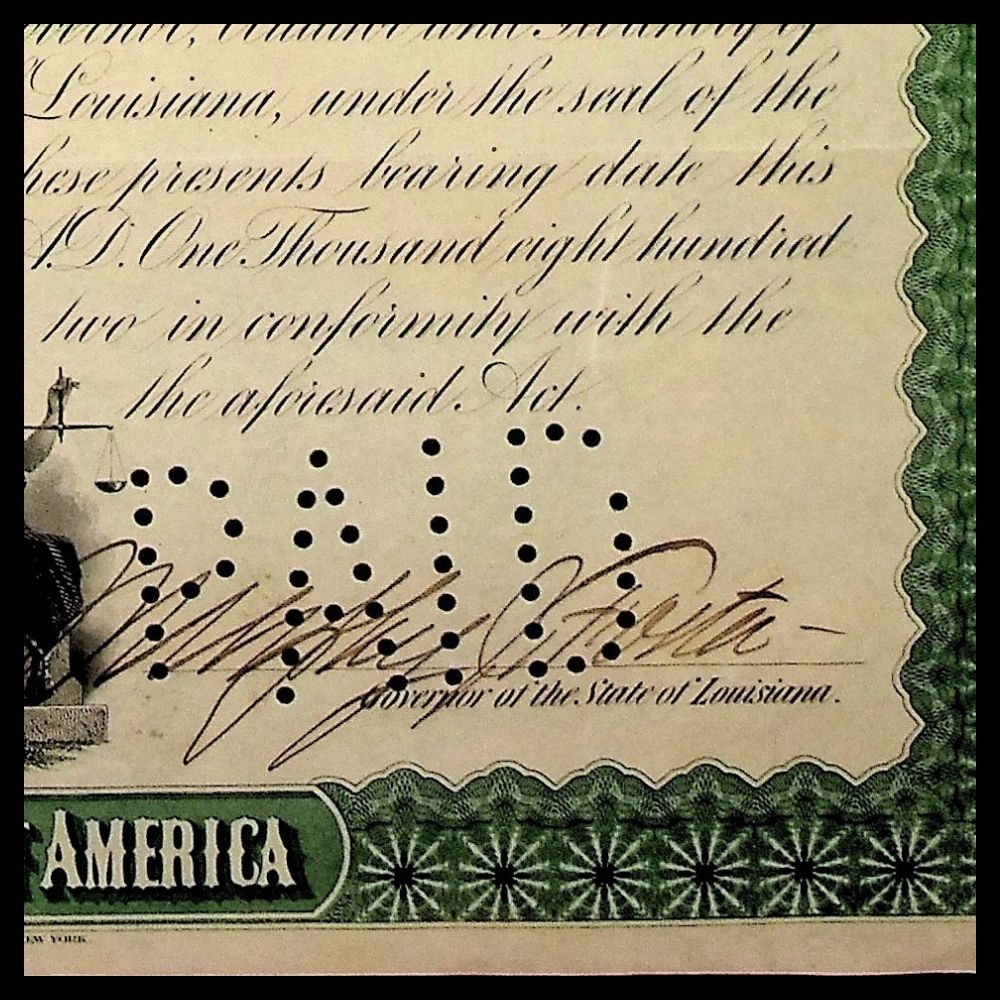 Governor, Auditor and Secretary of
Louisiana, under the seal of the
these presents bearing date this
A.D. One Thousand eight hundred
two in conformity with the
the aforesaid. Act.
PAID
Murphy J. Foster
Governor of the State of Louisiana.
AMERICA
NEW YORK